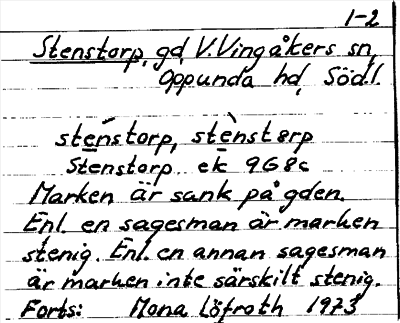 1-2
Stenstorp, gd, V. Vingåkers sn,
Oppunda hd, Södl.
sténstorp, stènstɘrp
Stenstorp ek 9G8c
Marken är sank på gden.
Enl. en sagesman är marken
stenig. Enl. en annan sagesman
är marken inte särskilt stenig.
Forts: Mona Löfroth 1973